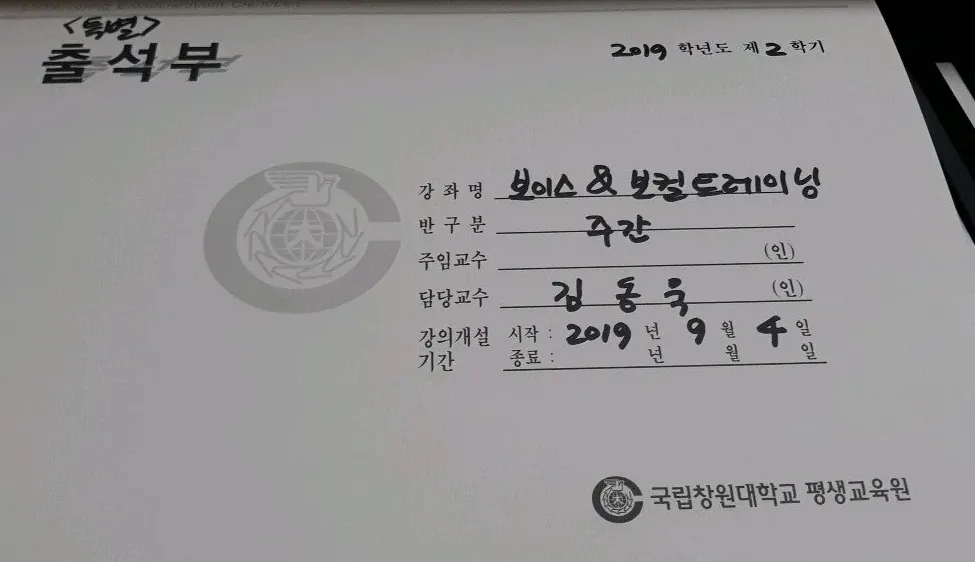 <특별>
출석부
2019 학년도 제 2 학기
강 좌 명 보이스 & 보컬트레이닝
반 구 분 주간
주임교수 (인)
담당교수 김동욱 (인)
강의개설 시작 : 2019 년 9 월 4 일
기간 종료 : 년 월 일
국립창원대학교 평생교육원